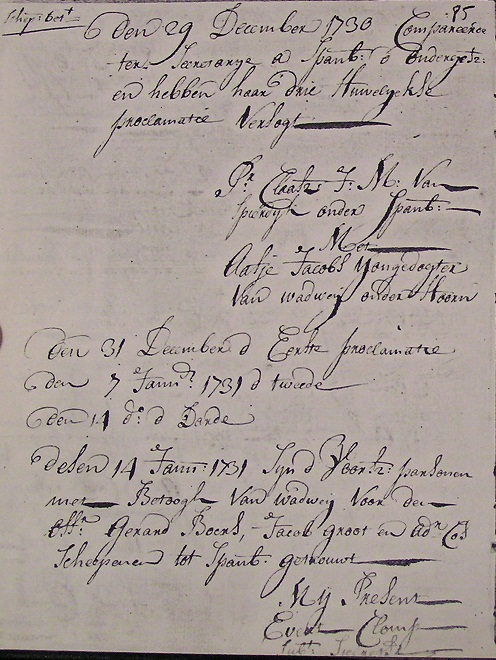 85
Schep: best
den 29 December 1730 Compareerde
ter Secretarye a Spanb: d' ondergetz:
en hebben haar drie Huwelykse
proclamatie Versogt
Pr. Claasz J: M: Van
Spierdyk onder Spanb:
Met
Aafje Jacobs Jongedogter
Van wadweij onder Hoorn
den 31 December d Eerste proclamatie
den 7 Janu: 1731 d tweede
den 14 do: d Darde
desen 14 Janu: 1731 Syn d Voortz: parsonen
met Betoogh Van wadweij Voor den
offr: Gerard Boers, Jacob Groot en adr Cos
Scheepenen tot Spanb. getrouwt
Mij Present
Evert Clomp